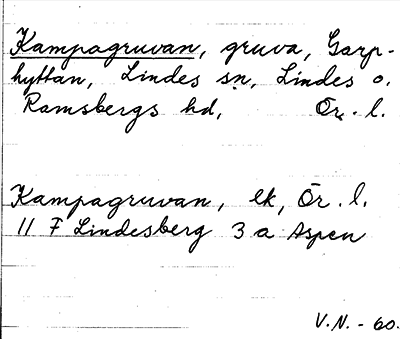 Kampagruvan, gruva, Garp-
hyttan, Lindes sn, Lindes o.
Ramsbergs hd, Ör. l.
Kampagruvan, ek, Ör. l.
11 F Lindesberg 3 a Aspen
V.N. - 60.